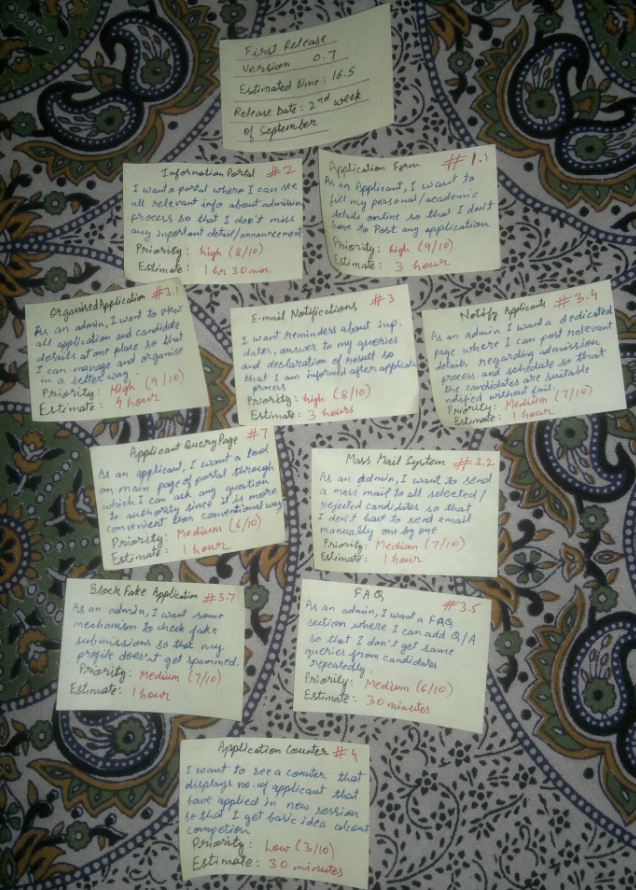 First Release
Version 0.7
Estimated time: 16.5
Release Date: 2nd week
of September
Information Portal #2
I want a portal where I can see
all relevant info about admission
process so that I don't miss
any important detail/announcement
Priority: high (8/10)
Estimate: 1 hr 30 min
Application Form #1.1
As an Applicant, I want to
fill my personal/academic
details online so that I don't
have to Post any application
Priority: high (9/10)
Estimate: 3 hour
Organised Application #3.1
As an admin, I want to view
all application and candidate
details at one place so that
I can manage and organise
in a better way.
Priority: High (9/10)
Estimate: 4 hour
E-mail Notifications #3
I want reminders about imp.
dates, answer to my queries
and declaration of result so
that I am informed after applicatn
process
Priority: high (8/10)
Estimate: 3 hours
Notify Applicants #3.4
As an admin I want a dedicated
page where I can post relevant
details regarding admission
process and schedule so that
the candidates are
notified without fail.
Priority: Medium (7/10)
Estimate: 1 hour
Applicant Query Page #7
As an applicant, I want a tool
on main page of portal through
which I can ask any question
to authority since it is more
convenient than conventional way
Priority: Medium (6/10)
Estimate: 1 hour
Mass Mail System #3.2
As an admin, I want to send
a mass mail to all selected/
rejected candidates so that
I don't have to send email
manually one by one
Priority: Medium (7/10)
Estimate: 1 hour
Block Fake Application #3.7
As an admin, I want some
mechanism to check fake
submissions so that my
profile doesn't get spammed.
Priority: Medium (7/10)
Estimate: 1 hour
FAQ #3.5
As an admin, I want a FAQ
section where I can add Q/A
so that I don't get same
queries from candidates
repeatedly.
Priority: Medium (6/10)
Estimate: 30 minutes
Application Counter #4
I want to see a counter that
displays no. of applicant that
have applied in new session
so that I get basic idea about
competion
Priority: Low (3/10)
Estimate: 30 minutes